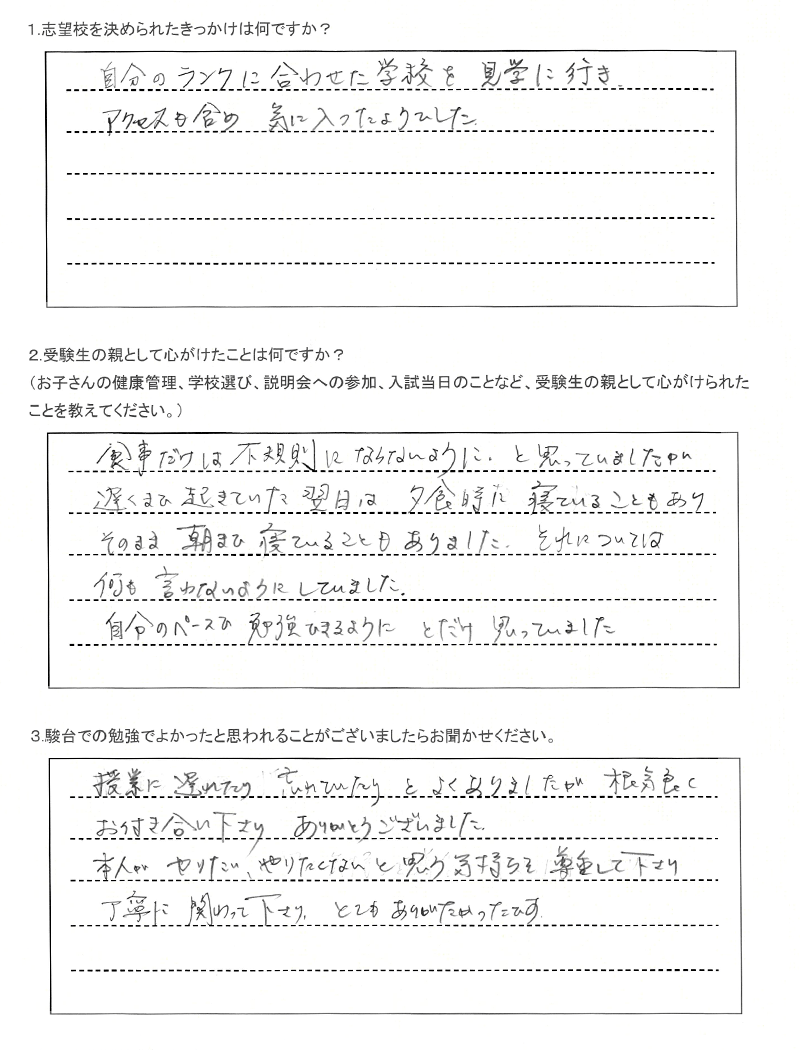 1.志望校を決められたきっかけは何ですか？
自分のランクに合わせた学校を 見学に行き、
アクセスも含め 気に入ったようでした。
２.受験生の親として心がけたことは何ですか？
（お子さんの健康管理、学校選び、説明会への参加、入試当日のことなど、受験生の親として心がけられた
ことを教えてください。）
食事だけは不規則にならないように、と思っていましたが
遅くまで起きていた翌日は 夕食時に寝ていることもあり
そのまま 朝まで 寝ていることもありました。それについては
何も言わないようにしていました。
自分のペースで 勉強できるように とだけ 思っていました
３.駿台での勉強でよかったと思われることがございましたらお聞かせください。
授業に 遅れたり 忘れていたり と よくありましたが 根気良く
お付き合い下さり ありがとうございました。
本人が やりたい、やりたくない と思う気持ちを 尊重して下さり
丁寧に 関わって下さり、とても ありがたかったです。